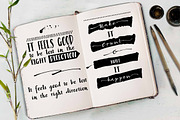 IT FEELS GOOD
to be lost in the
RIGHT DIRECTION
it feels good to be lost
in the right direction
Make
IT
Count
MAKE
IT
happen